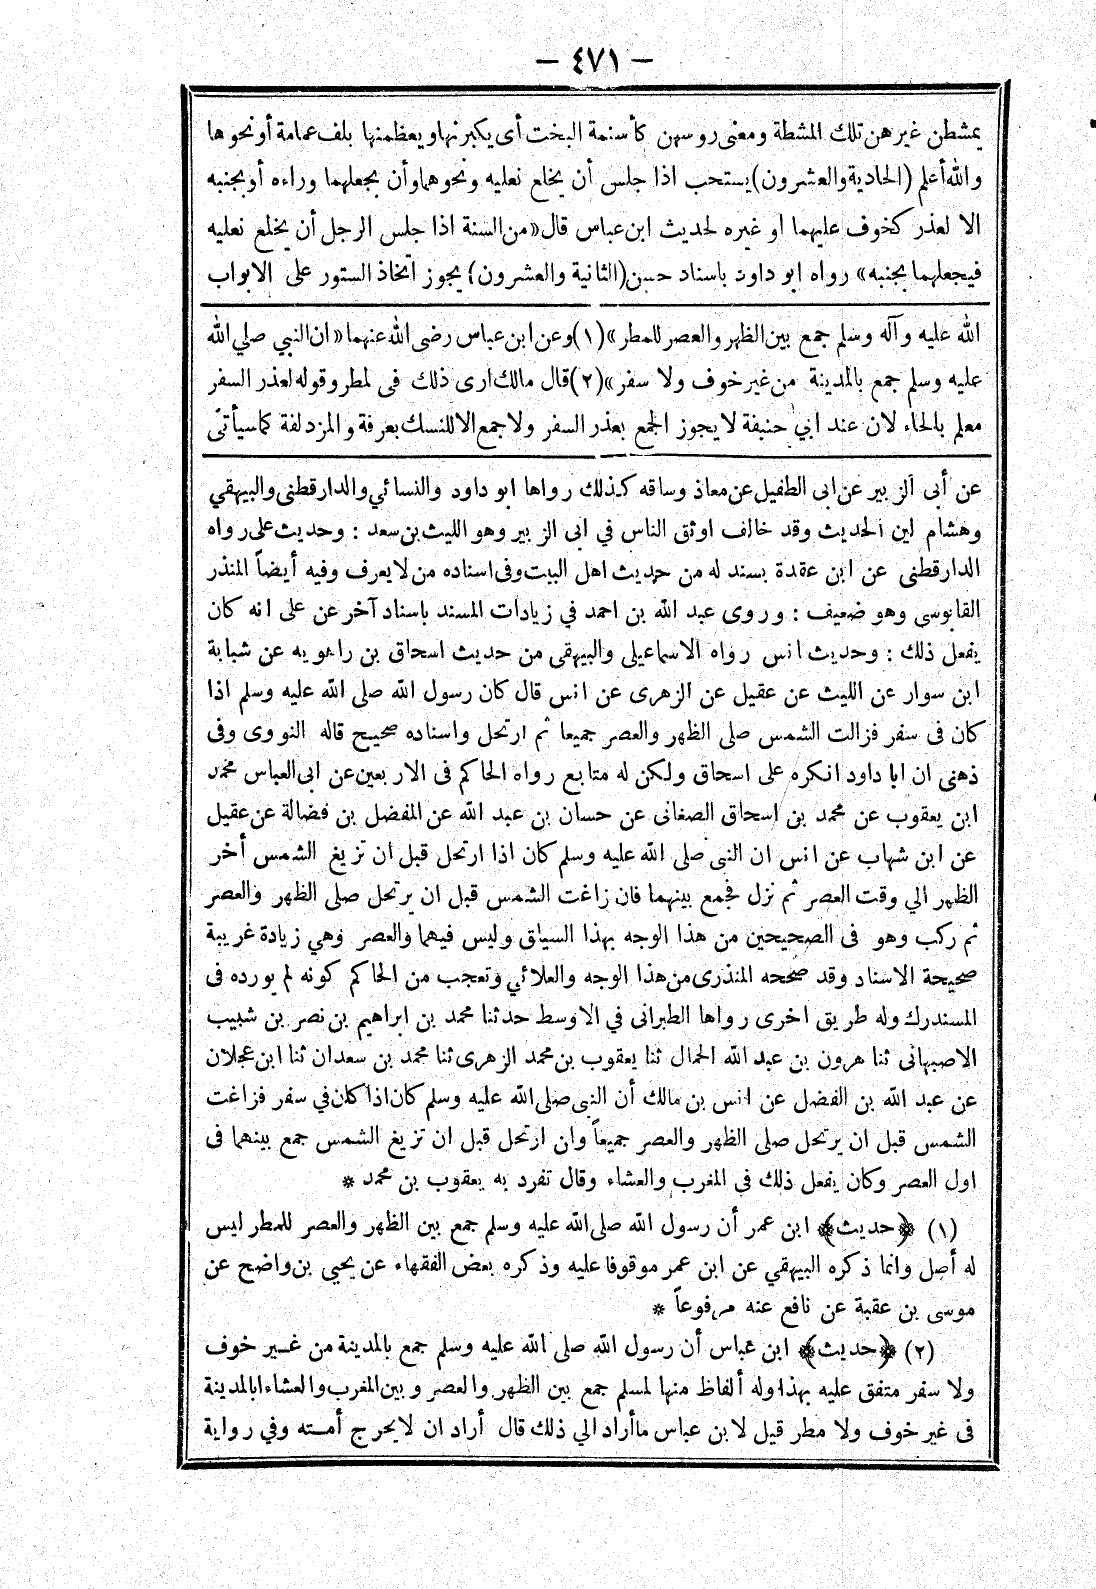 — ٤٧١ —
يمشطن غيرهن تلك المشطة ومعنى روسهن كأسنمة البخت أى يكبرنها ويعظمنها بلف عمامة أو نحوها
والله أعلم (الحادية والعشرون) يستحب اذا جلس أن يخلع نعليه ونحوهما وأن يجعلهما وراءه أو بجنبه
الا لعذر كخوف عليهما او غيره لحديث ابن عباس قال «من السنة اذا جلس الرجل أن يخلع نعليه
فيجعلهما بجنبه» رواه ابو داود باسناد حسن (الثانية والعشرون) يجوز اتخاذ الستور على الابواب
الله عليه وآله وسلم جمع بين الظهر والعصر للمطر» (١) وعن ابن عباس رضى الله عنهما «ان النبي صلي الله
عليه وسلم جمع بالمدينة من غير خوف ولا سفر» (٢) قال مالك ارى ذلك فى لمطر وقوله لعذر السفر
معلم بالحاء لان عند ابي حنيفة لا يجوز الجمع بعذر السفر ولا جمع الا للنسك بعرفة والمزدلفة كما سيأتى
عن أبى الزبير عن ابى الطفيل عن معاذ وساقه كذلك رواها ابو داود والنسائي والدارقطنى والبيهقي
وهشام لين الحديث وقد خالف اوثق الناس في ابى الزبير وهو الليث بن سعد : وحديث على رواه
الدارقطنى عن ابن عقدة بسند له من حديث اهل البيت وفى اسناده من لا يعرف وفيه أيضاً المنذر
القابوسى وهو ضعيف : وروى عبد الله بن احمد في زيادات المسند باسناد آخر عن على انه كان
يفعل ذلك : وحديث انس رواه الاسماعيلى والبيهقى من حديث اسحاق بن راهويه عن شبابة
ابن سوار عن الليث عن عقيل عن الزهرى عن انس قال كان رسول الله صلى الله عليه وسلم اذا
كان فى سفر فزالت الشمس صلى الظهر والعصر جميعا ثم ارتحل واسناده صحيح قاله النووى وفى
ذهنى ان ابا داود انكره على اسحاق ولكن له متابع رواه الحاكم فى الاربعين عن ابى العباس محمد
ابن يعقوب عن محمد بن اسحاق الصغانى عن حسان بن عبد الله عن المفضل بن فضالة عن عقيل
عن ابن شهاب عن انس ان النبى صلى الله عليه وسلم كان اذا ارتحل قبل ان تزيغ الشمس أخر
الظهر الي وقت العصر ثم نزل فجمع بينهما فان زاغت الشمس قبل ان يرتحل صلى الظهر والعصر
ثم ركب وهو فى الصحيحين من هذا الوجه بهذا السياق وليس فيهما والعصر وهي زيادة غريبة
صحيحة الاسناد وقد صححه المنذرى من هذا الوجه والعلائي وتعجب من الحاكم كونه لم يورده فى
المستدرك وله طريق اخرى رواها الطبرانى في الاوسط حدثنا محمد بن ابراهيم بن نصر بن شبيب
الاصبهانى ثنا هرون بن عبد الله الحمال ثنا يعقوب بن محمد الزهرى ثنا محمد بن سعدان ثنا ابن عجلان
عن عبد الله بن الفضل عن انس بن مالك أن النبى صلى الله عليه وسلم كان اذا كان في سفر فزاغت
الشمس قبل ان يرتحل صلى الظهر والعصر جميعاً وان ارتحل قبل ان تزيغ الشمس جمع بينهما فى
اول العصر وكان يفعل ذلك في المغرب والعشاء وقال تفرد به يعقوب بن محمد *
(١) ﴿حديث﴾ ابن عمر أن رسول الله صلى الله عليه وسلم جمع بين الظهر والعصر للمطر ليس
له أصل وانما ذكره البيهقي عن ابن عمر موقوفا عليه وذكره بعض الفقهاء عن يحيى بن واضح عن
موسى بن عقبة عن نافع عنه مرفوعاً *
(٢) ﴿حديث﴾ ابن عباس أن رسول الله صلى الله عليه وسلم جمع بالمدينة من غير خوف
ولا سفر متفق عليه بهذا وله ألفاظ منها لمسلم جمع بين الظهر والعصر وبين المغرب والعشاء ابالمدينة
فى غير خوف ولا مطر قيل لابن عباس ما أراد الي ذلك قال أراد ان لا يحرج أمته وفي رواية